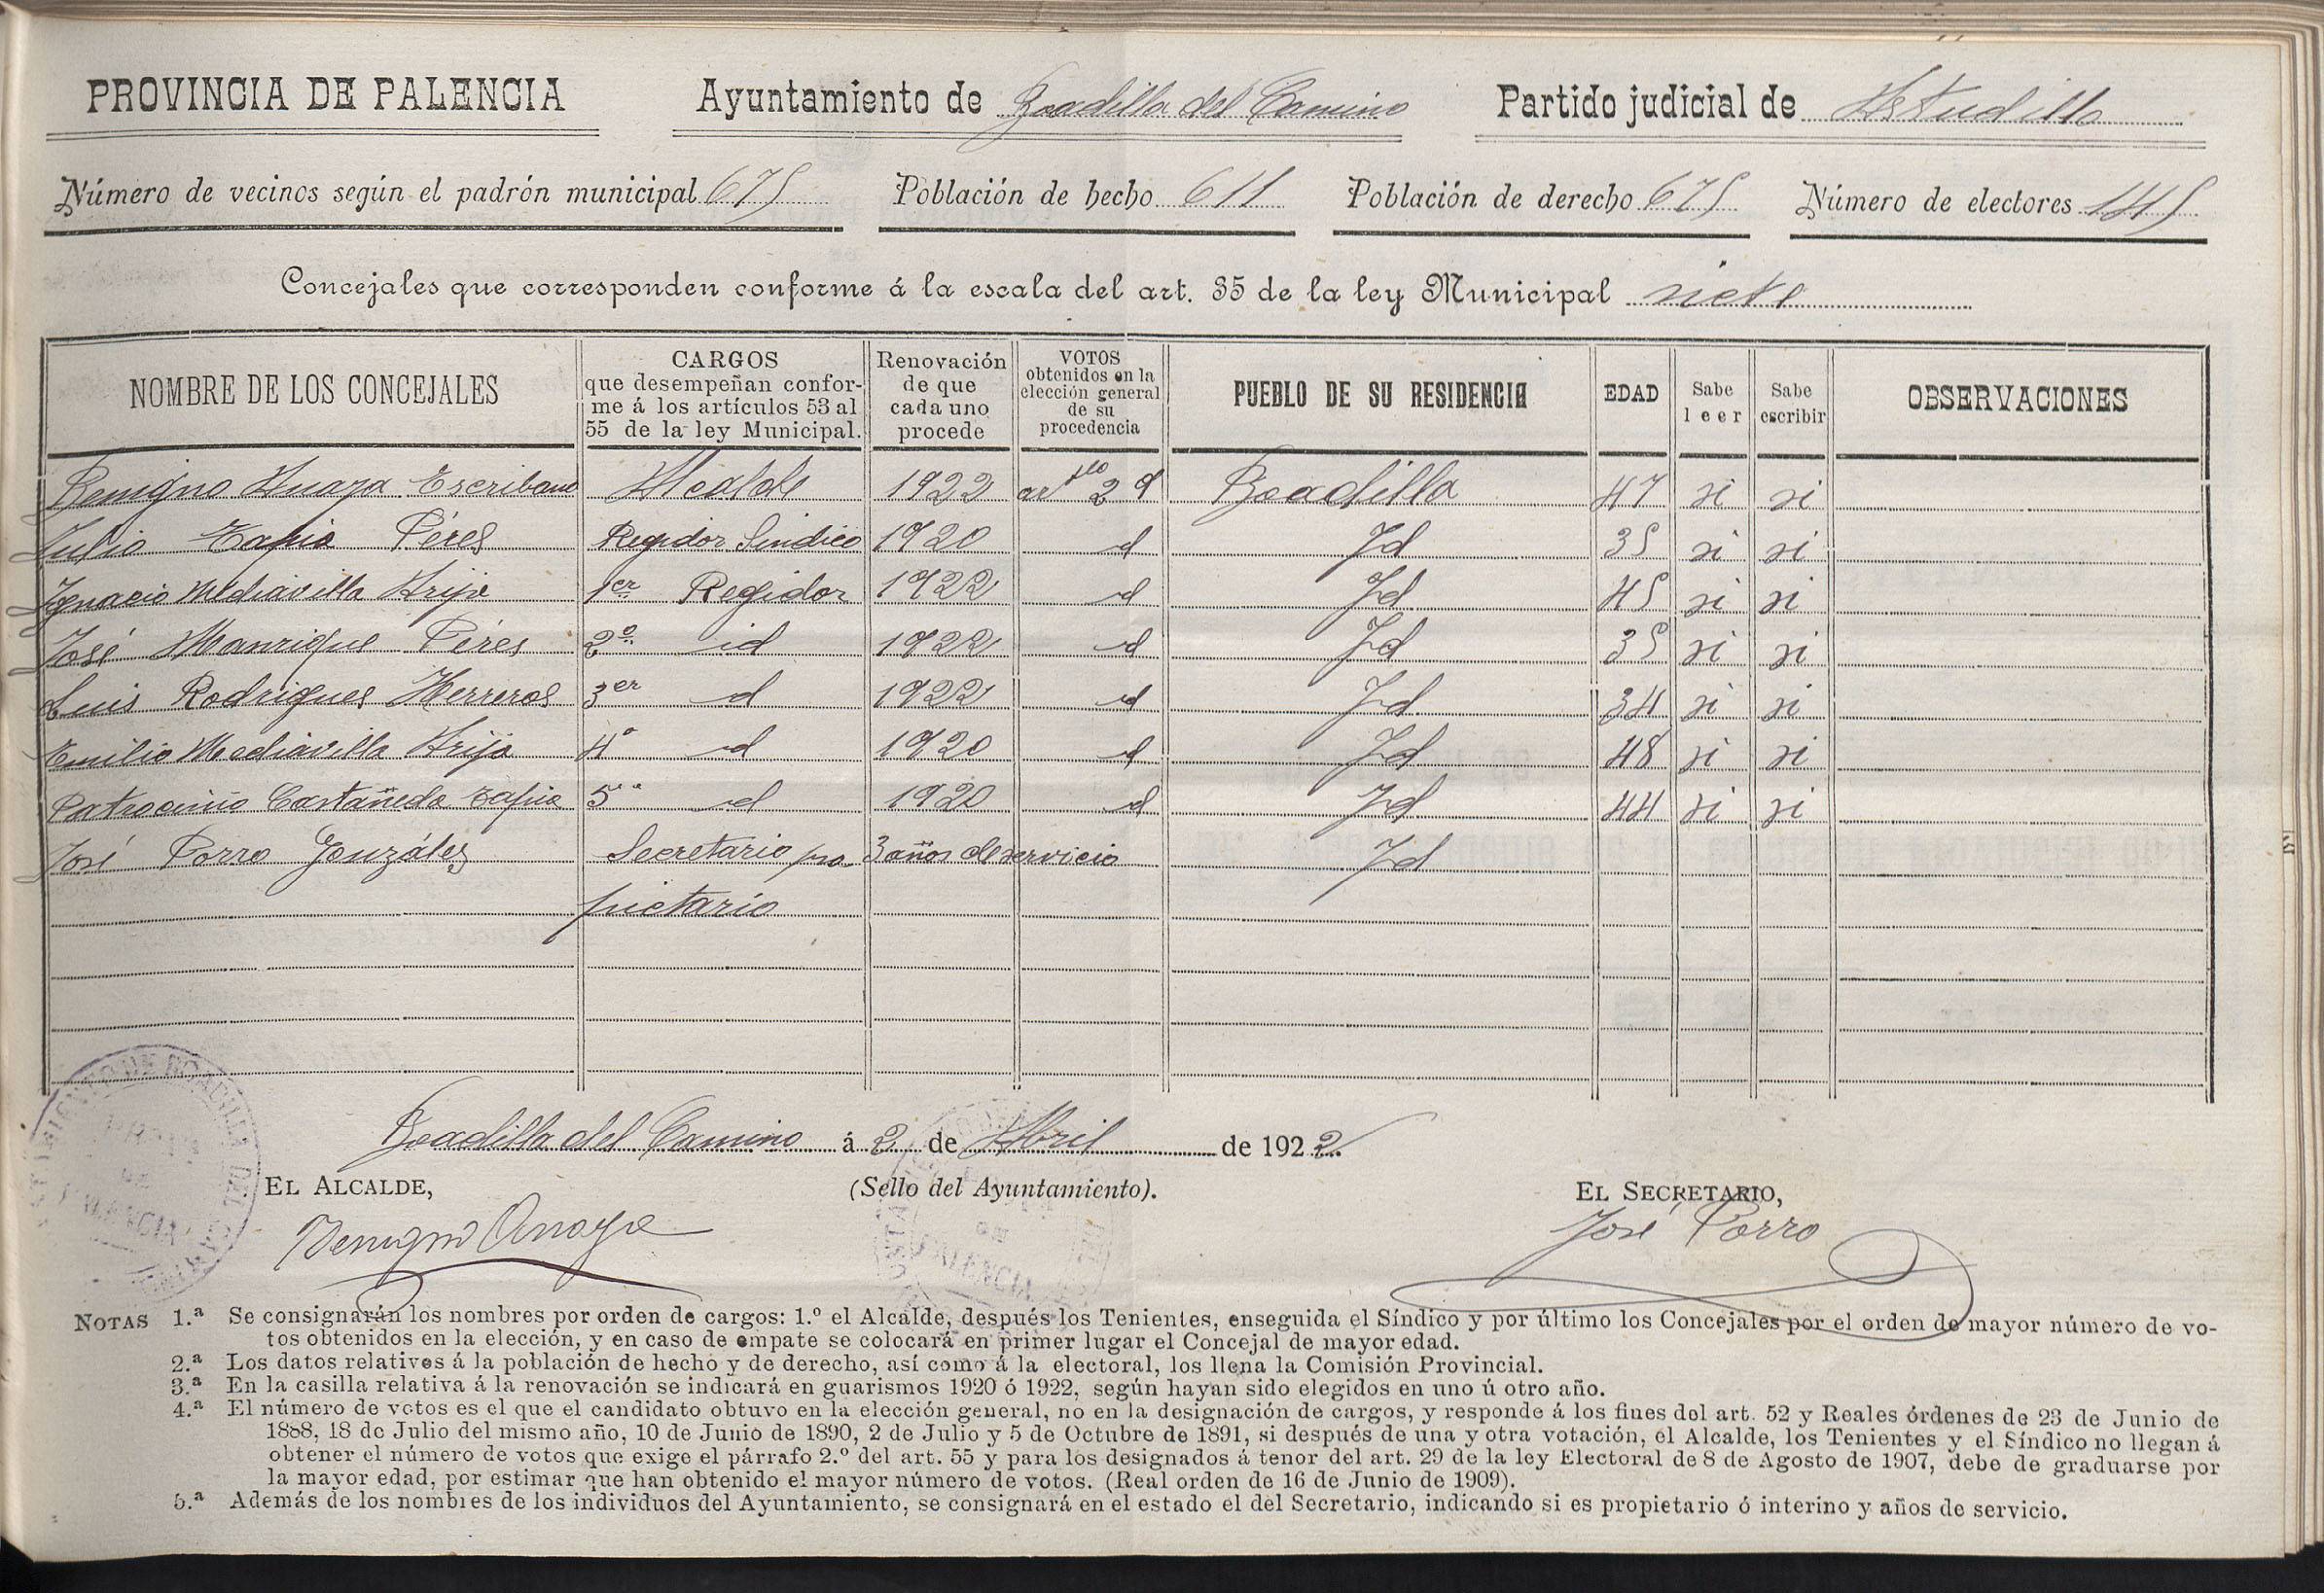 PROVINCIA DE PALENCIA Ayuntamiento de Boadilla del Camino Partido judicial de Astudillo
Número de vecinos según el padrón municipal 675 Población de hecho 611 Población de derecho 675 Número de electores 145
Concejales que corresponden conforme á la escala del art. 35 de la ley Municipal siete
NOMBRE DE LOS CONCEJALES CARGOS que desempeñan conforme á los artículos 53 al 55 de la ley Municipal. Renovación de que cada uno procede VOTOS obtenidos en la elección general de su procedencia PUEBLO DE SU RESIDENCIA EDAD Sabe leer Sabe escribir OBSERVACIONES
Benigno Anaya Escribano Alcalde 1922 artlo 29 Boadilla 47 si si
Julio Tapia Péres Regidor Sindico 1920 id Id 35 si si
Ignacio Mediavilla Arija 1er Regidor 1922 id Id 45 si si
José Manrique Péres 2º id 1922 id Id 35 si si
Luis Rodrigues Herreros 3er id 1922 id Id 34 si si
Emilio Mediavilla Arija 4º id 1920 id Id 48 si si
Patrocinio Castañeda Tapia 5º id 1920 id Id 44 si si
José Porro González Secretario pro 3 años de servicio Id
pietario
Boadilla del Camino á 2 de Abril de 1922
EL ALCALDE, (Sello del Ayuntamiento). EL SECRETARIO,
Benigno Anaya José Porro
NOTAS 1.ª Se consignarán los nombres por orden de cargos: 1.º el Alcalde, después los Tenientes, enseguida el Síndico y por último los Concejales por el orden de mayor número de vo-
tos obtenidos en la elección, y en caso de empate se colocará en primer lugar el Concejal de mayor edad.
2.ª Los datos relativos á la población de hecho y de derecho, así como á la electoral, los llena la Comisión Provincial.
3.ª En la casilla relativa á la renovación se indicará en guarismos 1920 ó 1922, según hayan sido elegidos en uno ú otro año.
4.ª El número de votos es el que el candidato obtuvo en la elección general, no en la designación de cargos, y responde á los fines del art. 52 y Reales órdenes de 23 de Junio de
1888, 18 de Julio del mismo año, 10 de Junio de 1890, 2 de Julio y 5 de Octubre de 1891, si después de una y otra votación, el Alcalde, los Tenientes y el Síndico no llegan á
obtener el número de votos que exige el párrafo 2.º del art. 55 y para los designados á tenor del art. 29 de la ley Electoral de 8 de Agosto de 1907, debe de graduarse por
la mayor edad, por estimar que han obtenido el mayor número de votos. (Real orden de 16 de Junio de 1909).
5.ª Además de los nombres de los individuos del Ayuntamiento, se consignará en el estado el del Secretario, indicando si es propietario ó interino y años de servicio.